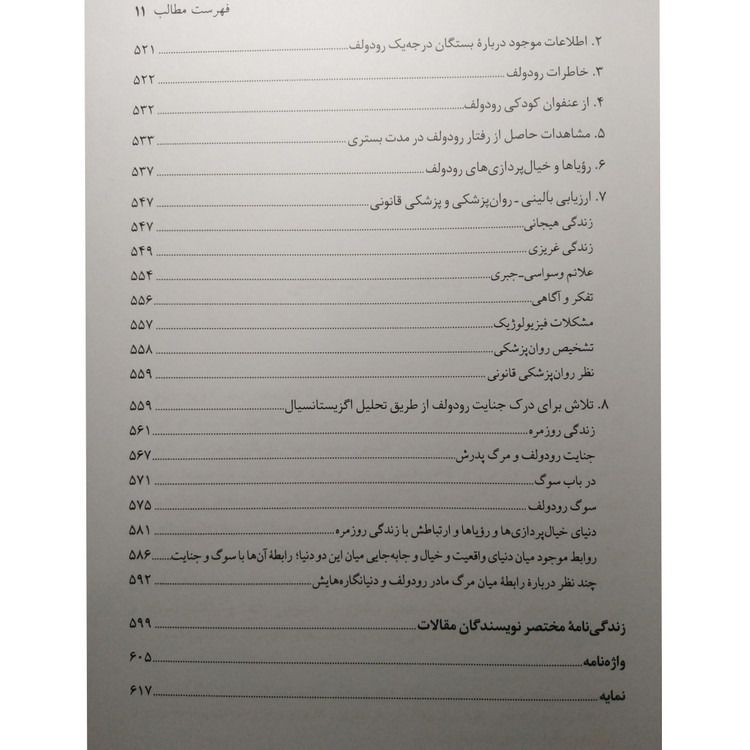 فهرست مطالب ۱۱
۲. اطلاعات موجود دربارهٔ بستگان درجه‌یک رودولف ۵۲۱
۳. خاطرات رودولف ۵۲۲
۴. از عنفوان کودکی رودولف ۵۳۲
۵. مشاهدات حاصل از رفتار رودولف در مدت بستری ۵۳۳
۶. رؤیاها و خیال‌پردازی‌های رودولف ۵۳۷
۷. ارزیابی بالینی - روان‌پزشکی و پزشکی قانونی ۵۴۷
زندگی هیجانی ۵۴۷
زندگی غریزی ۵۴۹
علائم وسواسی-جبری ۵۵۴
تفکر و آگاهی ۵۵۶
مشکلات فیزیولوژیک ۵۵۷
تشخیص روان‌پزشکی ۵۵۸
نظر روان‌پزشکی قانونی ۵۵۹
۸. تلاش برای درک جنایت رودولف از طریق تحلیل اگزیستانسیال ۵۵۹
زندگی روزمره ۵۶۱
جنایت رودولف و مرگ پدرش ۵۶۷
در باب سوگ ۵۷۱
سوگ رودولف ۵۷۵
دنیای خیال‌پردازی‌ها و رؤیاها و ارتباطش با زندگی روزمره ۵۸۱
روابط موجود میان دنیای واقعیت و خیال و جابه‌جایی میان این دو دنیا؛ رابطهٔ آن‌ها با سوگ و جنایت ۵۸۶
چند نظر دربارهٔ رابطهٔ میان مرگ مادر رودولف و دنیانگاره‌هایش ۵۹۲
زندگی‌نامهٔ مختصر نویسندگان مقالات ۵۹۹
واژه‌نامه ۶۰۵
نمایه ۶۱۷